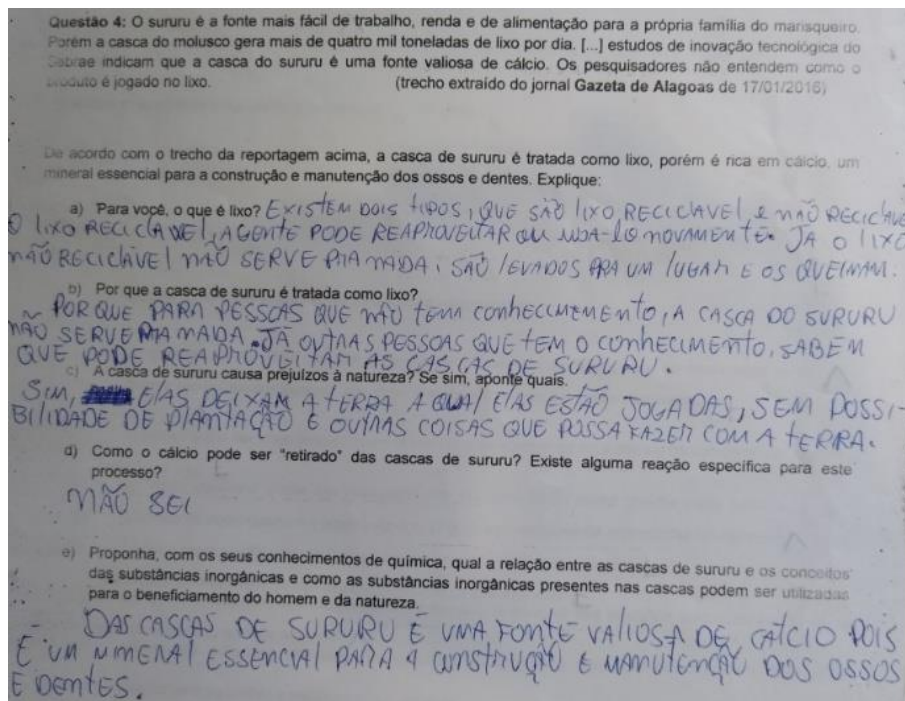 Questão 4: O sururu é a fonte mais fácil de trabalho, renda e de alimentação para a própria família do marisqueiro.
Porém a casca do molusco gera mais de quatro mil toneladas de lixo por dia. [...] estudos de inovação tecnológica do
Sebrae indicam que a casca do sururu é uma fonte valiosa de cálcio. Os pesquisadores não entendem como o
produto é jogado no lixo. (trecho extraído do jornal Gazeta de Alagoas de 17/01/2016)
De acordo com o trecho da reportagem acima, a casca de sururu é tratada como lixo, porém é rica em cálcio, um
mineral essencial para a construção e manutenção dos ossos e dentes. Explique:
a) Para você, o que é lixo? EXISTEM DOIS TIPOS, QUE SÃO LIXO RECICLAVEL, E NÃO RECICLAVE
O LIXO RECICLAVEL, A GENTE PODE REAPROVEITAR OU USA-LO NOVAMENTE. JÁ O LIXO
NÃO RECICLÁVEL NÃO SERVE PRA NADA. SÃO LEVADOS PRA UM LUGAR E OS QUEIMAM.
b) Por que a casca de sururu é tratada como lixo?
PORQUE PARA PESSOAS QUE NÃO TEM CONHECIMEMENTO, A CASCA DO SURURU
NÃO SERVE PRA NADA. JÁ OUTRAS PESSOAS QUE TEM O CONHECIMENTO, SABEM
QUE PODE REAPROVEITAR AS CASCAS DE SURURU.
c) A casca de sururu causa prejuízos à natureza? Se sim, aponte quais.
SIM, ELAS DEIXAM A TERRA A QUAL ELAS ESTÃO JOGADAS, SEM POSSI-
BILIDADE DE PLANTAÇÃO E OUTRAS COISAS QUE POSSA FAZER COM A TERRA.
d) Como o cálcio pode ser "retirado" das cascas de sururu? Existe alguma reação específica para este
processo?
NÃO SEI
e) Proponha, com os seus conhecimentos de química, qual a relação entre as cascas de sururu e os conceitos
das substâncias inorgânicas e como as substâncias inorgânicas presentes nas cascas podem ser utilizadas
para o beneficiamento do homem e da natureza.
DAS CASCAS DE SURURU É UMA FONTE VALIOSA DE CALCIO POIS
É UM NIMERAL ESSENCIAL PARA A CONSTRUÇÃO E MANUTENÇÃO DOS OSSOS
E DENTES.